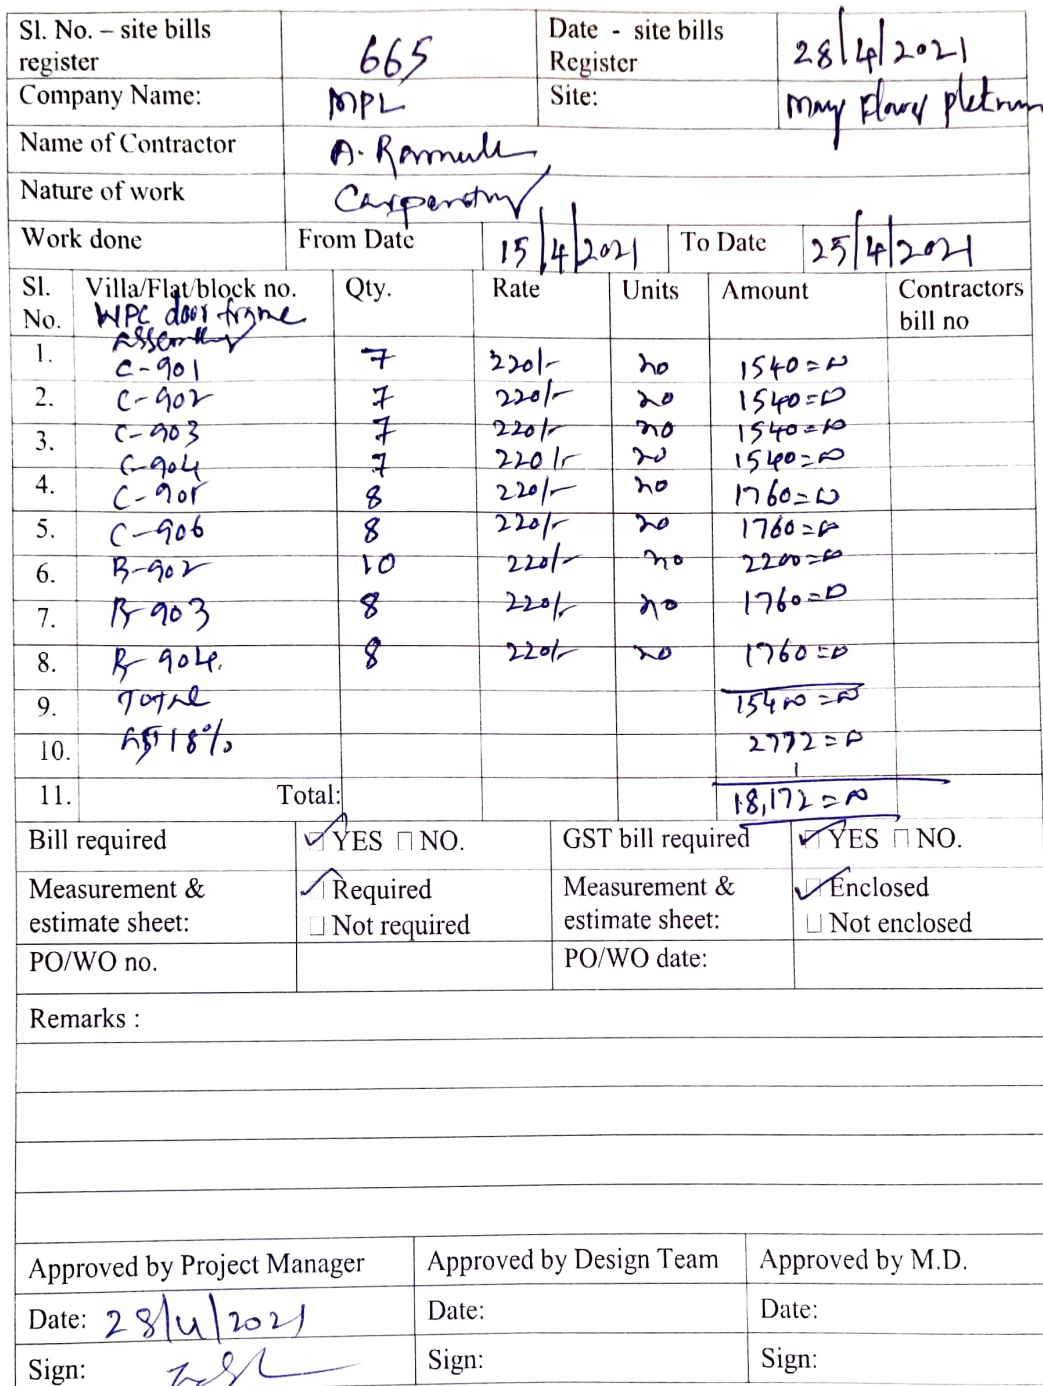 Sl. No. – site bills register 665 Date - site bills Register 28/4/2021
Company Name: MPL Site: May Flower Pletnum
Name of Contractor A. Ramulu
Nature of work Carpentry
Work done From Date 15/4/2021 To Date 25/4/2021
Sl. No. Villa/Flat/block no. Qty. Rate Units Amount Contractors bill no
WPC door frame
Assembly
1. C-901 7 220/- no 1540=00
2. C-902 7 220/- no 1540=00
3. C-903 7 220/- no 1540=00
C-904 7 220/- no 1540=00
4. C-905 8 220/- no 1760=00
5. C-906 8 220/- no 1760=00
6. B-902 10 220/- no 2200=00
7. B-903 8 220/- no 1760=00
8. B-904. 8 220/- no 1760=00
9. Total 15400=00
10. GST 18% 2772=00
11. Total: 18,172=00
Bill required YES NO. GST bill required YES NO.
Measurement & estimate sheet: Required Not required Measurement & estimate sheet: Enclosed Not enclosed
PO/WO no. PO/WO date:
Remarks :
Approved by Project Manager Approved by Design Team Approved by M.D.
Date: 28/4/2021 Date: Date:
Sign: Sign: Sign: